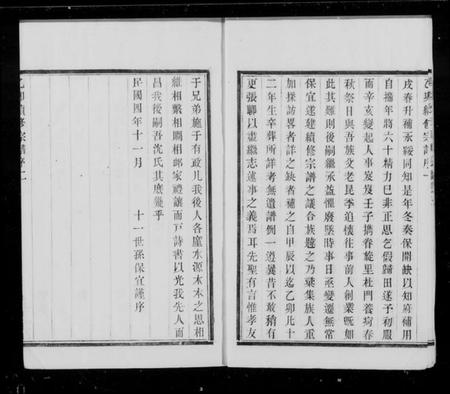 戌春升補承綏同知是年冬奏保開缺以知府補用
自揣年將六十精力已非正思乞假歸田遂予初服
而辛亥變起人事岌岌壬子攜眷旋里杜門養疴春
秋祭日與吾族父老昆季追懷往事前人創業既如
此其難則後嗣繼承益懼廢墜時事日亟變遷無常
保宜遂建續修宗譜之議合族韙之乃集族人重
加採訪畧者詳之缺者補之自甲辰以迄乙卯凡十
二年生卒葬所詳者無遺譜例一遵曩昔不敢稍有
更張聊以盡繼志述事之義焉耳先聖有言惟孝友
于兄弟施于有政凡我後人各廑水源木本之思相
維相繫相賙相卹家禮讓而戶詩書以光我先人而
昌我後嗣吾沈氏其庶幾乎
民國四年十一月　十一世孫保宜謹序